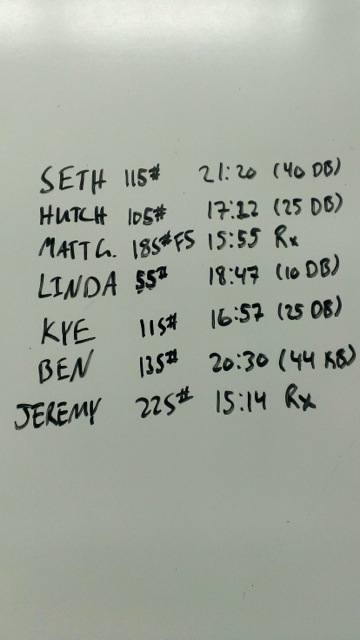 SETH 115# 21:20 (40 DB)
HUTCH 105# 17:22 (25 DB)
MATT G. 185# FS 15:55 Rx
LINDA 55# 18:47 (10 DB)
KYE 115# 16:57 (25 DB)
BEN 135# 20:30 (44 KB)
JEREMY 225# 15:14 Rx